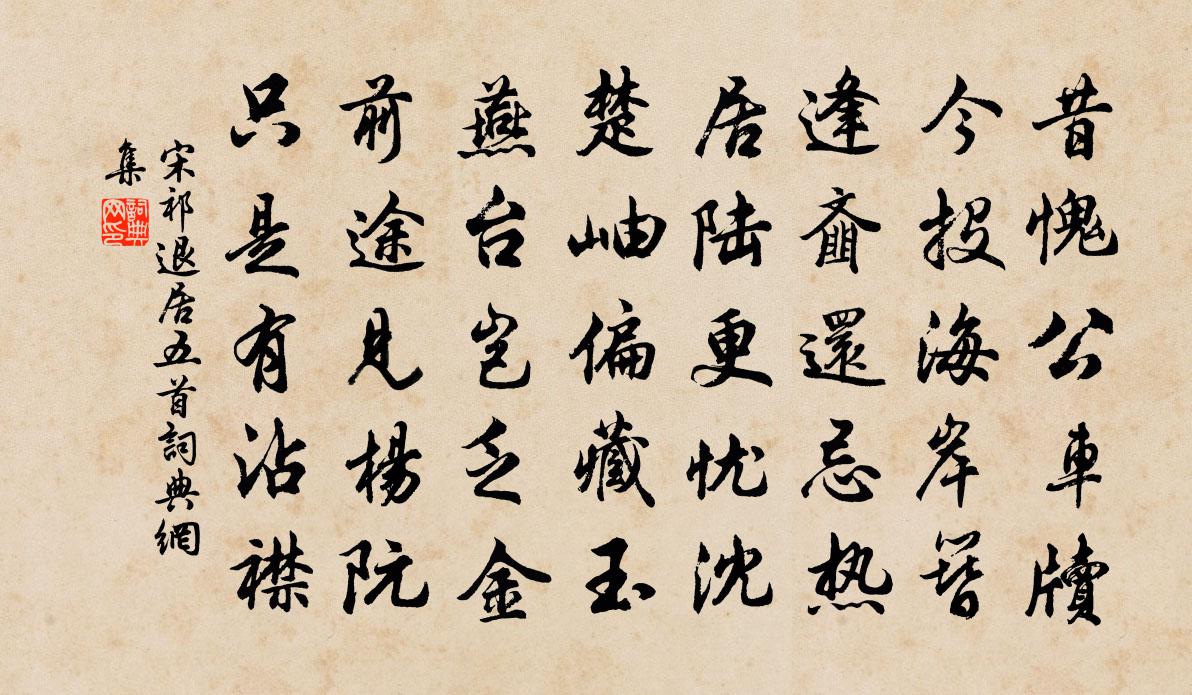 昔愧公車牘
今投海岸簪
逢齑還忌热
居陆更忧沈
楚岫偏藏玉
燕台岂乏金
前途見楊阮
只是有沾襟
宋祁退居五首詞典網
集
詞典网印